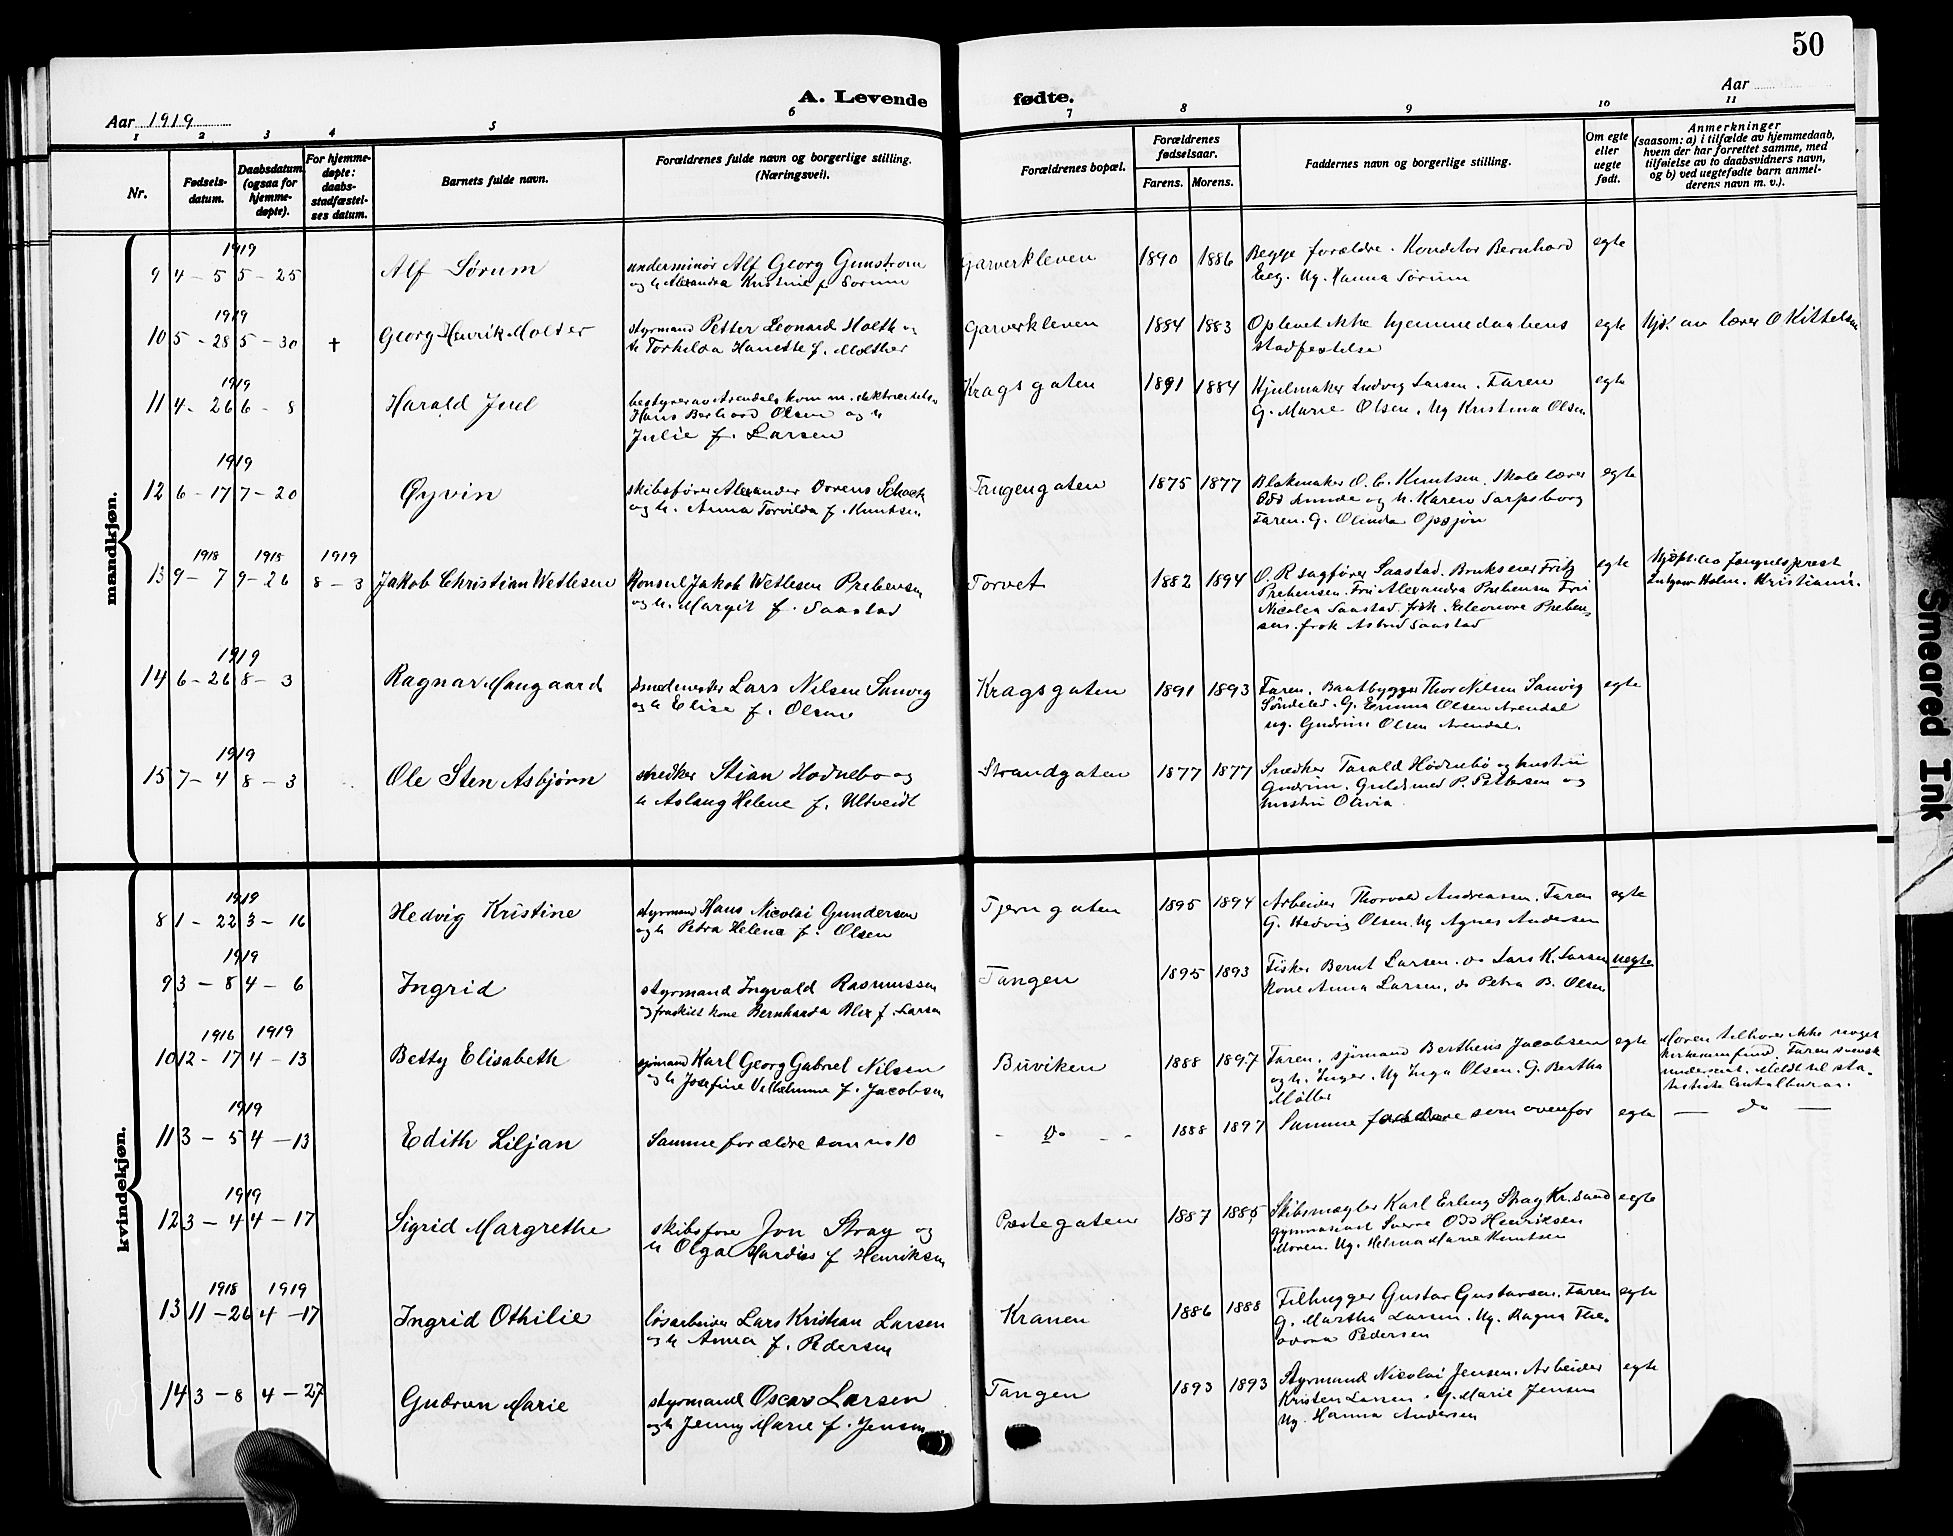 50
A. Levende fødte.
Aar 1919
Aar
1 2 3 4 5 6 7 8 9 10 11
Nr.
Fødsels-
datum.
Daabsdatum
(ogsaa for
hjemme-
døpte).
For hjemme-
døpte:
daabs-
stadfæstel-
ses datum.
Barnets fulde navn.
Forældrenes fulde navn og borgerlige stilling.
(Næringsvei).
Forældrenes bopæl.
Forældrenes
fødselsaar.
Farens. Morens.
Faddernes navn og borgerlige stilling.
Om egte
eller
uegte
født.
Anmerkninger
(saasom: a) i tilfælde av hjemmedaab,
hvem der har forrettet samme, med
tilføielse av to daabsvidners navn,
og b) ved uegtefødte barn anmel-
derens navn m. v.).
mandkjøn.
1919
9 4-5 5-25 Alf Sørum
Alf Georg Gunstrom
og h Alexandra Kristine f. Sørum
Garverkleven 1890 1886
Begge forældre. Konditor Bernhard
Eeg. Ug. Hanna Sørum
egte
1919
10 5-28 5-30 † Georg Henrik Molter
styrmand Petter Leonard Holth og
h Torhilda Hanette f. Molther
Garverkleven 1884 1883
Oplevet ikke hjemmedaabens
stadfestelse
egte
Hjd. av lærer O Kittelsen
1919
11 4-26 6-8 Harald Juel
bestyrer av Arendals komm.
Hans Berhard Olsen og h
Julie f. Larsen
Kragsgaten 1891 1884
Hjulmaker Ludvig Larsen. Faren
G. Marie Olsen. Ug Kristina Olsen
egte
1919
12 6-17 7-20 Øyvin
skibsfører Alexander Schack
og h. Anna Torvilda f. Knutsen
Tangengaten 1875 1877
Blokmaker O. C. Knutsen. Skolelærer
Odd Aunde og h. Karen Sarpsborg
Faren. G. Olinda Opsjøn
egte
1918 1918 1919
13 9-7 9-26 8-3 Jakob Christian Wetlesen
Konsul Jakob Wetlesen Prebensen
og h. Margit f. Saastad
Torvet 1882 1894
O. R sagfører Saastad. Brukseier Fritz
Prebensen. Fru Alexandra Prebensen Fru
Nicolea Saastad. frøk. Eleonora Preben-
sen. frøk Astrid Saastad
egte
Hjdøpt av fængselsprest
Holm. Kristiania.
1919
14 6-26 8-3 Ragnar Maugaard
Smedmester Lars Nilsen Sanvig
og h Elise f. Olsen
Kragsgaten 1891 1893
Faren. Baatbygger Thor Nilsen Sanvig
Søndeled. G. Emma Olsen Arendal
ug. Gudrun Olsen Arendal.
egte
1919
15 7-4 8-3 Ole Sten Asbjørn
snedker Stian Hødnebo og
h Aslaug Helene f. Ultveidt
Strandgaten 1877 1877
Snedker Tarald Hødnebø og hustru
Gudrun. Guldsmed P. Pettersen og
hustru Olivia.
kvindekjøn.
1919
8 1-22 3-16 Hedvig Kristine
styrmand Hans Nicolai Gundersen
og h Petra Helene f. Olsen
Tjerngaten 1895 1894
Arbeider Thorvald Andreassen. Faren
G. Hedvig Olsen. Ug Agnes Andersen
egte
1919
9 3-8 4-6 Ingrid
styrmand Ingvald Rasmussen
og fraskilt kone Bernharda Blix f. Larsen
Tangen 1895 1893
Fisker Bernt Larsen. do Lars K. Larsen
Kone Anna Larsen, do Petra B. Olsen
uegte
1916 1919
10 12-17 4-13 Betty Elisabeth
sjømand Karl Georg Gabriel Nilsen
og h Josefine Vilhelmine f. Jacobsen
Buviken 1888 1897
Faren. sjømand Berthens Jacobsen
og h. Inger. Ug Inga Olsen. G. Bertha
Møller
egte
Moren tilhører ikke noget
kirkesamfund. Faren svensk
undersaat. Meldt til sta-
tistiske Centralbureau.
1919
11 3-5 4-13 Edith Liljan
Samme forældre som no 10
- do - 1888 1897
Samme faddere som ovenfor
egte
- do -
1919
12 3-4 4-17 Sigrid Margrethe
skibsfører Jon Stray og
h Olga Hardis f Henriksen
Præstegaten 1887 1885
Skibsmægler Karl Erling Stray Kr.sand
gymnasiast Sverre Odd Henriksen
Moren. Ug. Helma Marie Knutsen
egte
1918 1919
13 11-26 4-17 Ingrid Othilie
løsarbeider Lars Kristian Larsen
og h Anna f. Pedersen
Kranen 1886 1888
Filhugger Gustav Gustavsen. Faren
G. Martha Larsen. Ug. Ragna The-
odora Pedersen
egte
14 3-8 4-27 Gudrun Marie
styrmand Oscar Larsen
og h Jenny Marie f. Jensen
Tangen 1893 1893
Styrmand Nicolai Jensen. Arbeider
Kristen Larsen. G. Marie Jensen
Ug. Hanna Andersen
egte
Smeared Ink